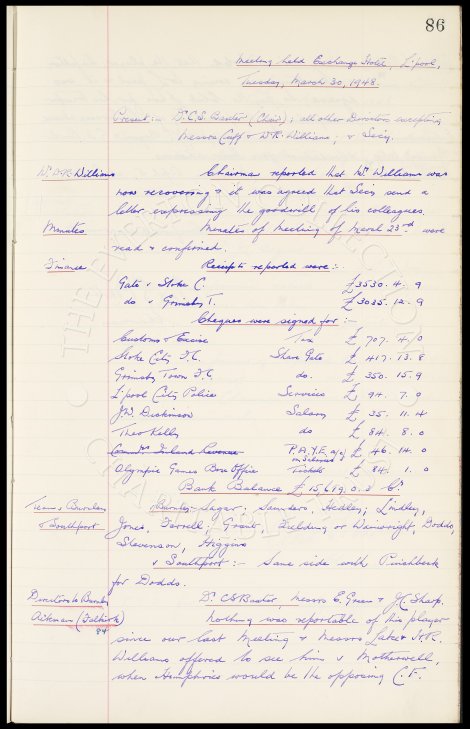 86
Meeting held Exchange Hotel, L'pool,
Tuesday, March 30, 1948.
Present:- Dr. C.S. Baxter (Chair); all other Directors excepting
Messrs Cuff & W.R. Williams; & Secy.
Mr. W.R. Williams Chairman reported that Mr. Williams was
now recovering & it was agreed that Secy send a
letter expressing the goodwill of his colleagues.
Minutes Minutes of Meeting of March 23rd were
read & confirmed.
Finance Receipts reported were:-
Gate v Stoke C. £3530. 4. 9
do v Grimsby T. £3035. 12. 9
Cheques were signed for:-
Customs & Excise Tax £ 707. 4. 0
Stoke City F.C. Share Gate £ 417. 13. 8
Grimsby Town F.C. do. £ 350. 15. 9
L'pool City Police Services £ 94. 7. 9
J.W. Dickinson Salary £ 35. 11. 4
Theo Kelly do £ 84. 8. 0
Commrs Inland Revenue P.A.Y.E. a/c £ 46. 14. 0
Olympic Games Box Office Tickets £ 84. 1. 0
Bank Balance £15619. 0. 8 Cr
Teams v Burnley Burnley:- Sagar; Saunders, Hedley; Lindley,
& Southport Jones, Farrell; Grant, Fielding or Wainwright, Dodds,
Stevenson, Higgins
v Southport:- Same side with Pinchbeck
for Dodds.
Directors to Burnley Dr. C.S. Baxter, Messrs E. Green & J.C. Sharp.
Aitkman (Falkirk) Nothing was reportable of this player
84
since our last Meeting & Messrs Lake & W.R.
Williams offered to see him v Motherwell,
when Humphries would be the opposing C.F.